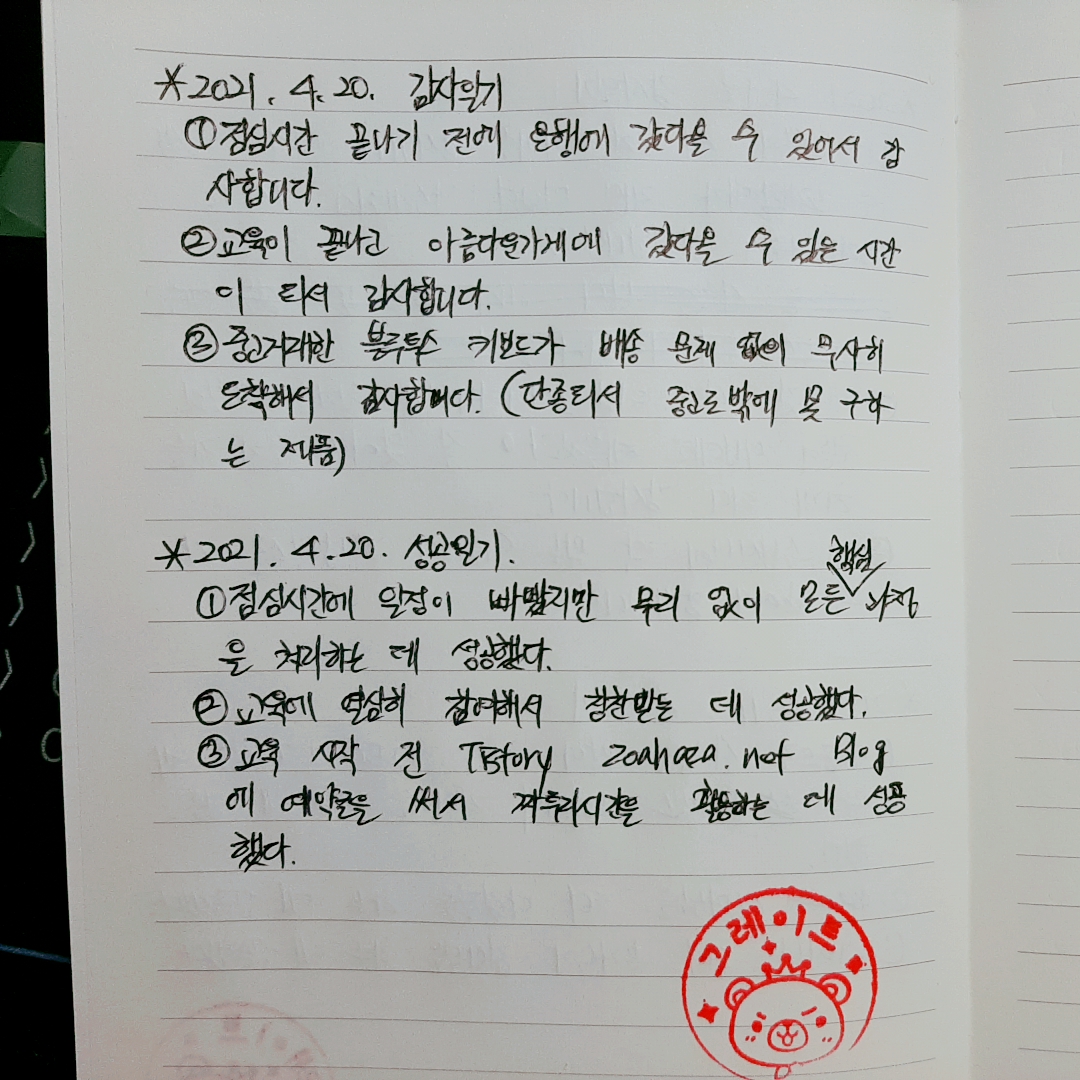 *2021. 4. 20. 감사일기
①점심시간 끝나기 전에 은행에 갔다올 수 있어서 감
사합니다.
②교육이 끝나고 아름다운가게에 갔다올 수 있는 시간
이 되서 감사합니다.
③중고거래한 블루투스 키보드가 배송 문제 없이 무사히
도착해서 감사합니다. (단종되서 중고로밖에 못 구하
는 제품)
*2021. 4. 20. 성공일기.
핵심
①점심시간에 일정이 바빴지만 무리 없이 모든 과정
을 처리하는 데 성공했다.
②교육에 열심히 참여해서 칭찬받는 데 성공했다.
③교육 시작 전 TBtory zoahaza.net Blog
에 예약글을 써서 짜투리시간을 활용하는 데 성공
했다.
그레이트